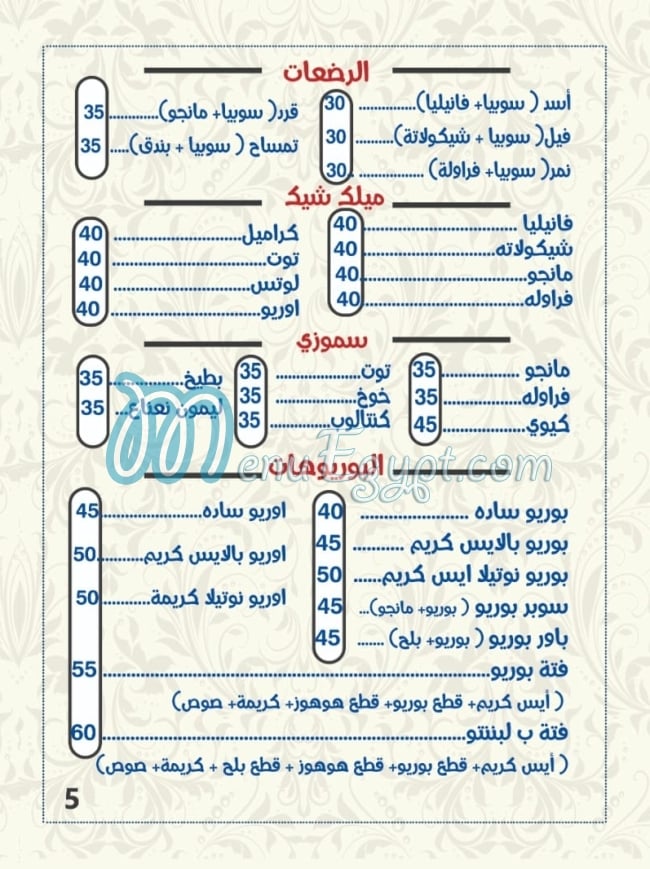 الرضعات
أسد ( سوبيا+ فانيليا)............... 30
فيل( سوبيا + شيكولاتة).......... 30
نمر( سوبيا+ فراولة) ................ 30
قرد( سوبيا+ مانجو)............. 35
تمساح ( سوبيا + بندق)..... 35
ميلك شيك
فانيليا ............................ 40
شيكولاته........................ 40
مانجو............................. 40
فراوله............................. 40
كراميل........................... 40
توت................................ 40
لوتس............................. 40
اوريو .............................. 40
سموزي
مانجو .................... 35
فراوله.................... 35
كيوي.................... 45
توت .................... 35
خوخ.................... 35
كنتالوب............... 35
بطيخ.................. 35
ليمون نعناع... 35
البوريوهات
بوريو ساده ...................... 40
بوريو بالايس كريم ........... 45
بوريو نوتيلا ايس كريم...... 50
سوبر بوريو ( بوريو+ مانجو)... 45
باور بوريو ( بوريو+ بلح) ....... 45
اوريو ساده..................... 45
اوريو بالايس كريم.......... 50
اوريو نوتيلا كريمة........... 50
فتة بوريو............................................................ 55
( أيس كريم+ قطع بوريو+ قطع هوهوز+ كريمة+ صوص)
فتة ب لبننتو........................................................ 60
( أيس كريم+ قطع بوريو+ قطع هوهوز + قطع بلح + كريمة+ صوص)
5
MenuEgypt.com